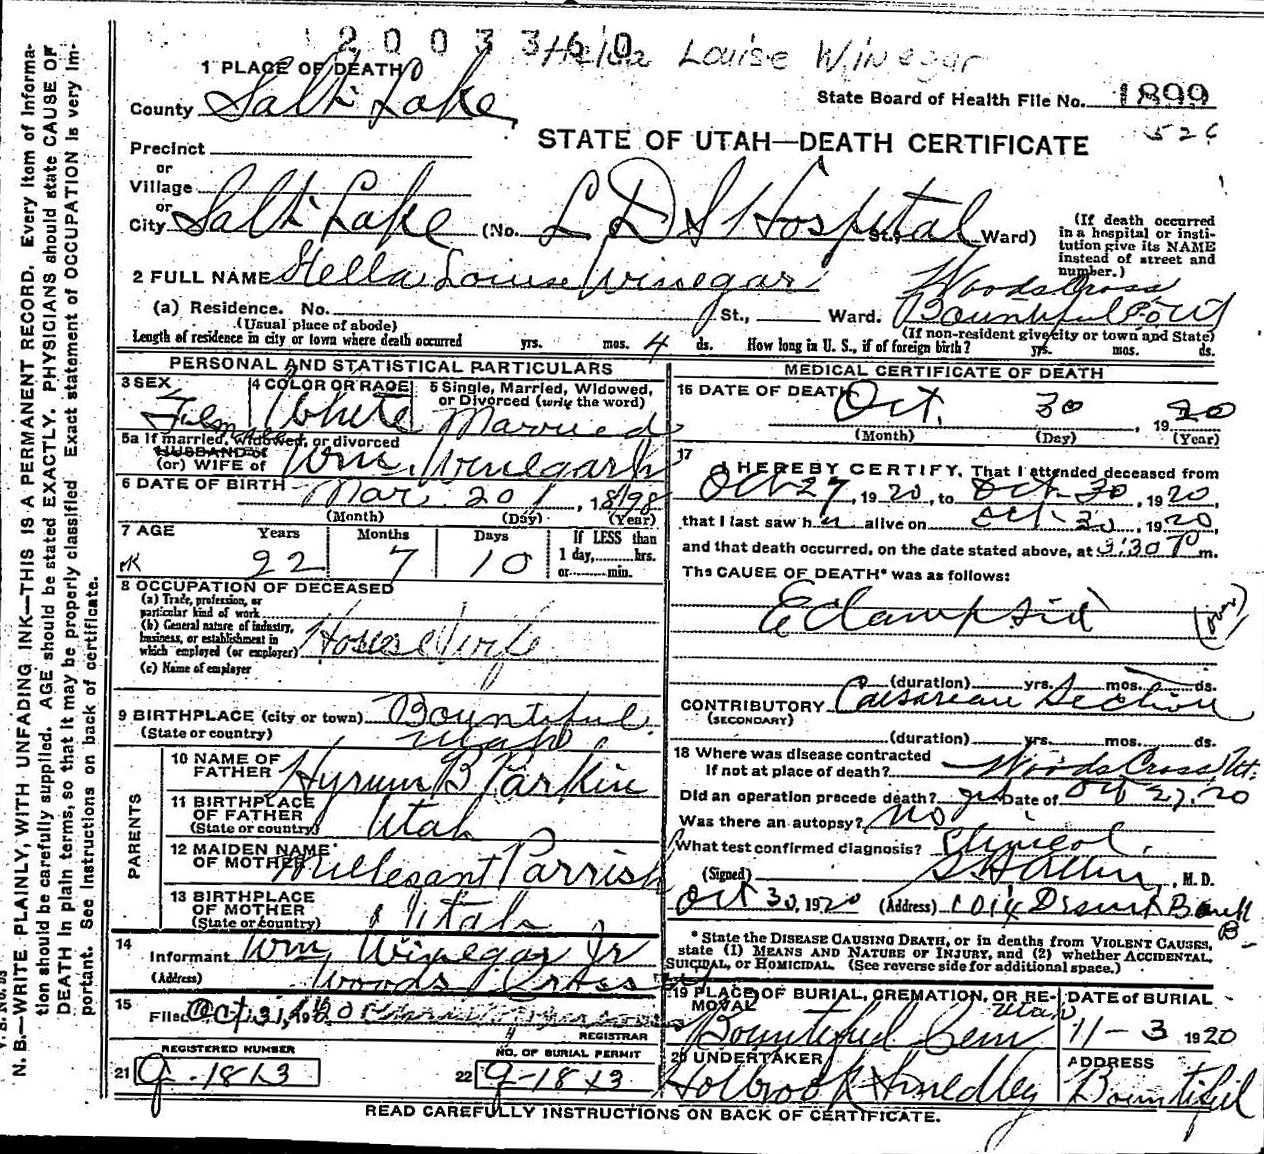 2003360 Helda Louise Winegar
1 PLACE OF DEATH
County Salt Lake
State Board of Health File No. 1899
526
STATE OF UTAH—DEATH CERTIFICATE
Precinct
or
Village
or
City Salt Lake (No. L D S Hospital St., Ward)
(If death occurred in a hospital or insti-
tution give its NAME
instead of street and
number.)
2 FULL NAME Stella Louise Winegar
Woods Cross
(a) Residence. No. St., Ward. Bountiful
(Usual place of abode) (If non-resident give city or town and State)
Length of residence in city or town where death occurred yrs. mos. 4 ds. How long in U. S., if of foreign birth? yrs. mos. ds.
PERSONAL AND STATISTICAL PARTICULARS
3 SEX 4 COLOR OR RACE 5 Single, Married, Widowed, or Divorced (write the word)
Female White Married
5a If married, widowed, or divorced
HUSBAND of
(or) WIFE of Wm. Winegar Jr
6 DATE OF BIRTH Mar. 20, 1898
(Month) (Day) (Year)
7 AGE Years Months Days If LESS than
1 day, hrs.
or min.
22 7 10
8 OCCUPATION OF DECEASED
(a) Trade, profession, or
particular kind of work
(b) General nature of industry,
business, or establishment in
which employed (or employer) Housewife
(c) Name of employer
9 BIRTHPLACE (city or town) Bountiful
(State or country) Utah
PARENTS
10 NAME OF FATHER Hyrum B Parkin
11 BIRTHPLACE OF FATHER (State or country) Utah
12 MAIDEN NAME OF MOTHER Millesant Parrish
13 BIRTHPLACE OF MOTHER (State or country) Utah
14 Informant Wm Winegar Jr
(Address) Woods Cross
15 Filed Oct 31, 1920
REGISTRAR
REGISTERED NUMBER NO. OF BURIAL PERMIT
21 9-1813 22 9-1813
MEDICAL CERTIFICATE OF DEATH
16 DATE OF DEATH Oct. 30, 1920
(Month) (Day) (Year)
17 I HEREBY CERTIFY, That I attended deceased from
Oct 27, 1920, to Oct 30, 1920
that I last saw her alive on Oct 30, 1920,
and that death occurred, on the date stated above, at 3:30 P m.
The CAUSE OF DEATH* was as follows:
Eclampsia (over)
(duration) yrs. mos. ds.
CONTRIBUTORY Caesarean Section
(SECONDARY)
(duration) yrs. mos. ds.
18 Where was disease contracted
if not at place of death? Woods Cross Ut.
Did an operation precede death? yes Date of Oct 27, 20
Was there an autopsy? No
What test confirmed diagnosis? Clinical.
(Signed) M. D.
Oct 30, 1920 (Address) 1014 Deseret Bank B
* State the DISEASE CAUSING DEATH, or in deaths from VIOLENT CAUSES,
state (1) MEANS AND NATURE OF INJURY, and (2) whether ACCIDENTAL,
SUICIDAL, or HOMICIDAL. (See reverse side for additional space.)
19 PLACE OF BURIAL, CREMATION, OR RE- DATE of BURIAL
MOVAL Utah
Bountiful Cem 11-3 1920
20 UNDERTAKER ADDRESS
Holbrook Smedley Bountiful
READ CAREFULLY INSTRUCTIONS ON BACK OF CERTIFICATE.
N. B.—WRITE PLAINLY, WITH UNFADING INK—THIS IS A PERMANENT RECORD. Every item of informa-
tion should be carefully supplied. AGE should be stated EXACTLY. PHYSICIANS should state CAUSE OF
DEATH in plain terms, so that it may be properly classified. Exact statement of OCCUPATION is very im-
portant. See instructions on back of certificate.